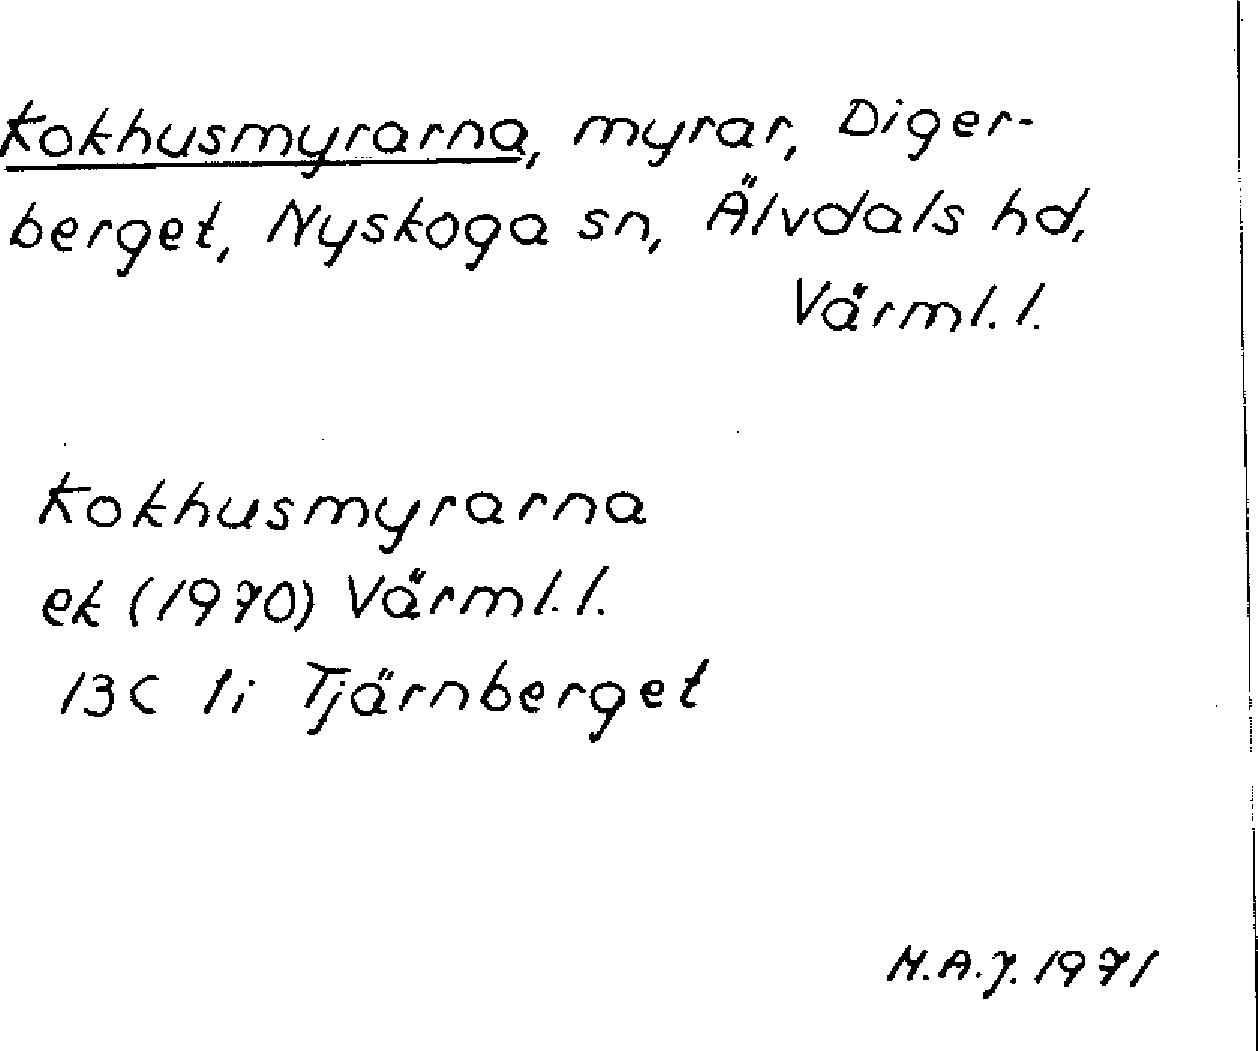 Kokhusmyrarna, myrar, Diger-
berget, Nyskoga sn, Älvdals hd,
Värml. l.
Kokhusmyrarna
ek (1970) Värml. l.
13C 1i Tjärnberget
M.A.J. 1971